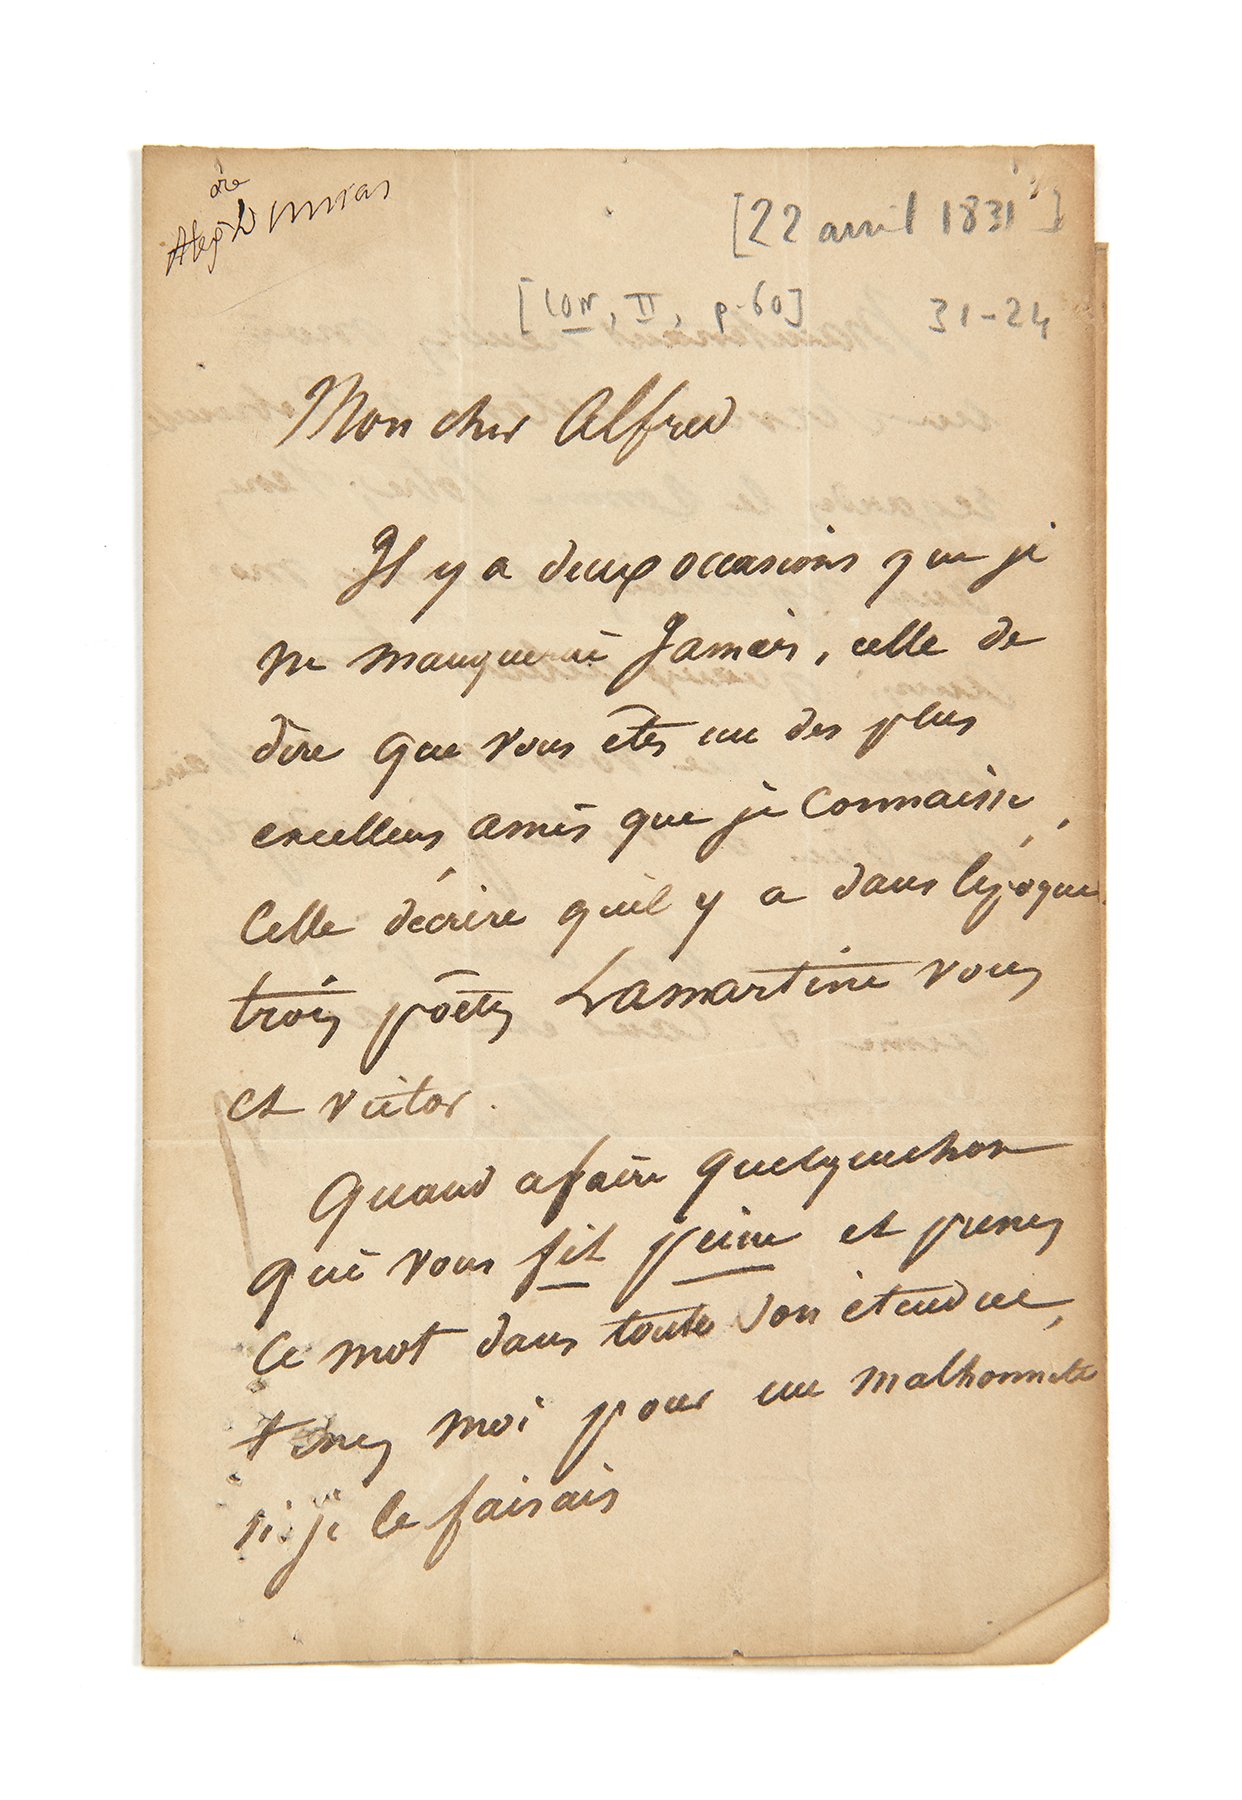 Alex dre Dumas
[22 avril 1831]
[cor, II, p. 60] 31-24
Mon cher Alfred
Il y a deux occasions que je
ne manquerai Jamais, celle de
dire que vous etes un des plus
excellens amis que je Connaisse,
Celle décrire quil y a dans lépoque
trois poëtes Lamartine vous
et victor.
Quand a faire quelquechose
qui vous fit peine et prenez
ce mot dans toute son étendue,
tenez moi pour un malhonnete
si je le faisais